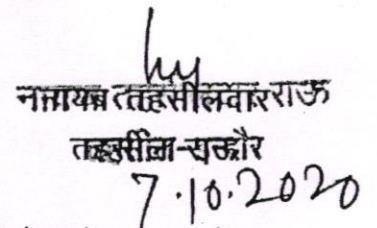 नायब तहसीलदार राऊ
तहसील-इन्दौर
7.10.2020